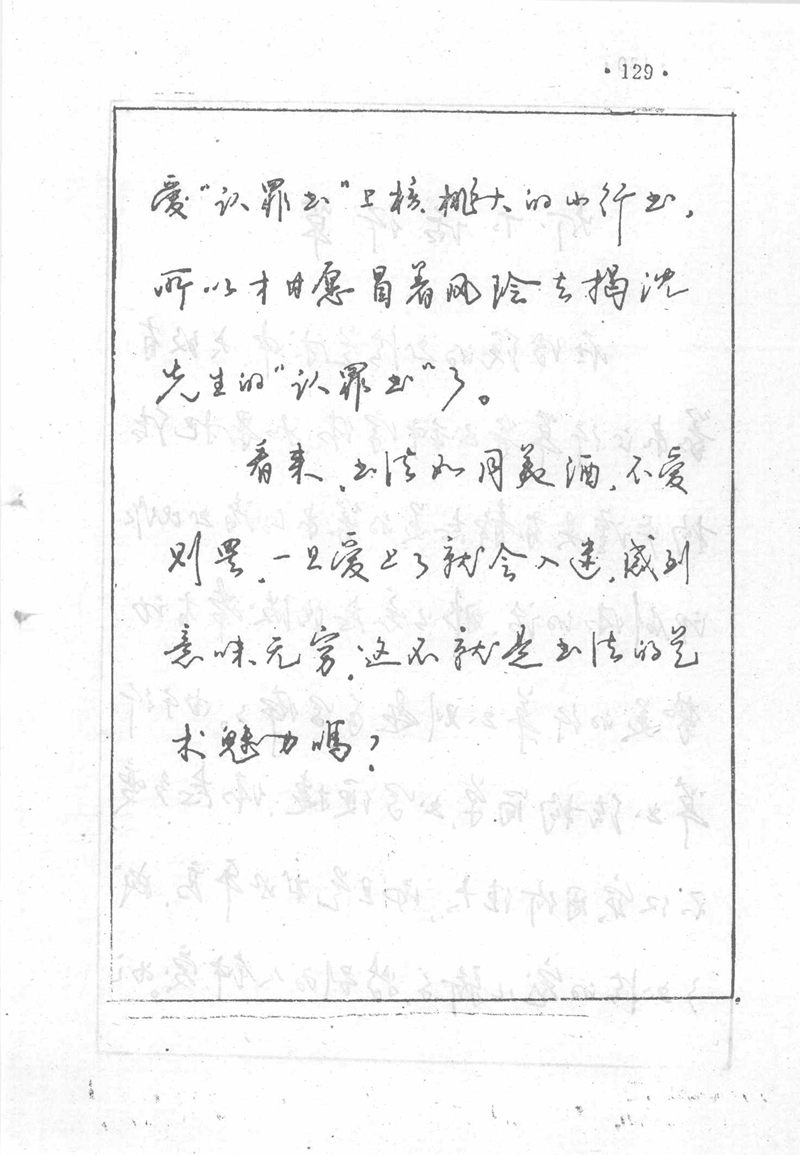 ·129·
爱“认罪书”上核桃大的小行书，
所以才甘愿冒着风险去揭沈
先生的“认罪书”了。
看来，书法如同美酒，不爱
则罢，一旦爱上了就会入迷，感到
意味无穷，这不就是书法的艺
术魅力吗？